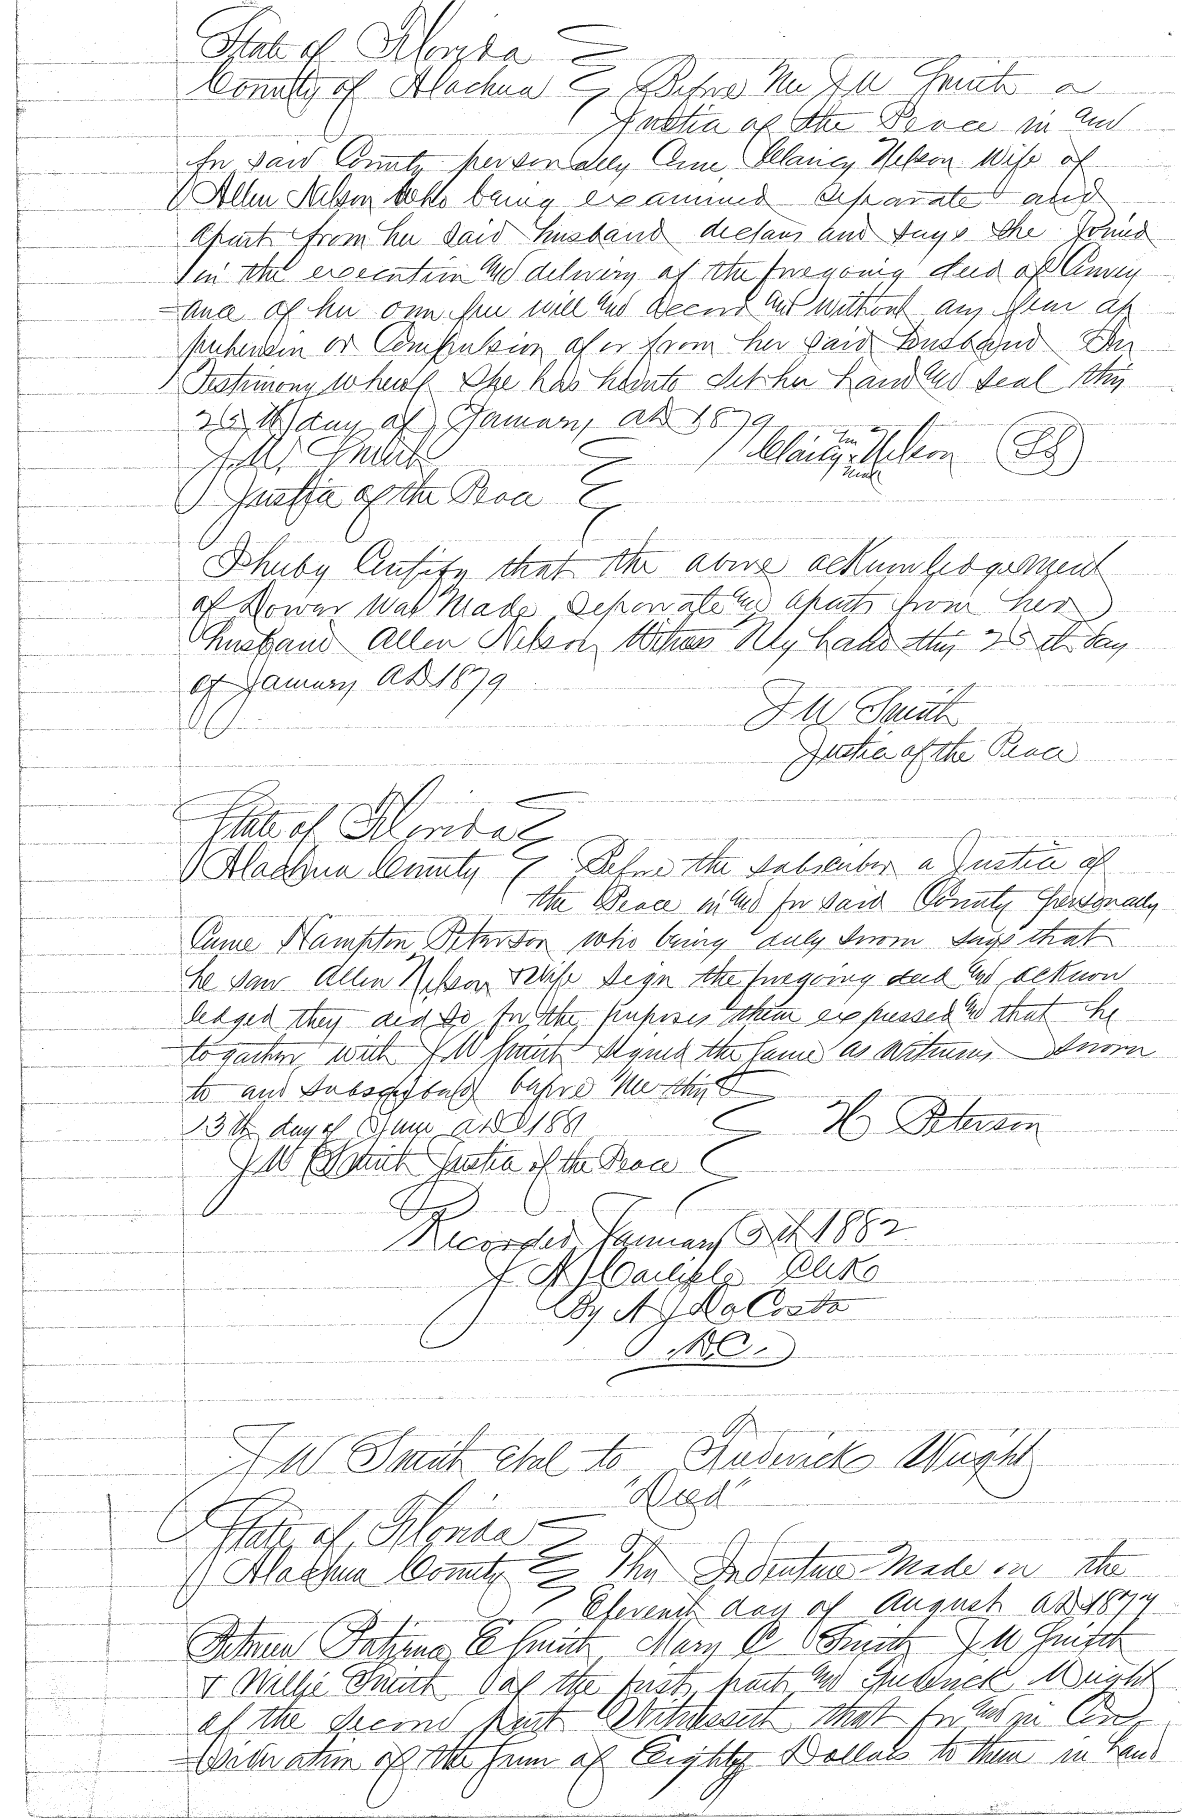 State of Florida
County of Alachua Before Me J W Smith a
Justice of the Peace in and
for said County personally Came Clancy Nelson Wife of
Allen Nelson Who being examined separate and
apart from her said husband declares and says She Joined
in the execution and delivery of the foregoing deed of Convey
ance of her own free will and accord and without any fear ap
prehension or Compulsion of or from her said husband In
Testimony whereof She has hereunto Set her hand and seal this
25th day of January AD 1879
J.W. Smith Clancy her x mark Nelson (LS)
Justice of the Peace
I hereby Certify that the above acknowledgement
of Dower Was Made Separate and apart from her
husband Allen Nelson Witness My hand this 25th day
of January AD 1879
J W Smith
Justice of the Peace
State of Florida
Alachua County Before the subscriber a Justice of
the Peace in and for said County personally
Came Hampton Peterson who being duly sworn says that
he saw Allen Nelson & Wife sign the foregoing deed and acknow
ledged they did so for the purposes therein expressed and that he
together with J W Smith signed the same as witness Sworn
to and Subscribed before Me this
13th day of June AD 1881 H Peterson
J W Smith Justice of the Peace
Recorded January 5th 1882
J A Carlisle Clerk
By A J DaCosta
D.C.
J W Smith etal to Frederick Wright
"Deed"
State of Florida
Alachua County This Indenture Made on the
Eleventh day of August AD 1877
Between Patiena E Smith Mary C Smith J W Smith
& Willie Smith of the first part and Frederick Wright
of the Second part Witnesseth that for and in Con
sideration of the Sum of Eighty Dollars to them in hand